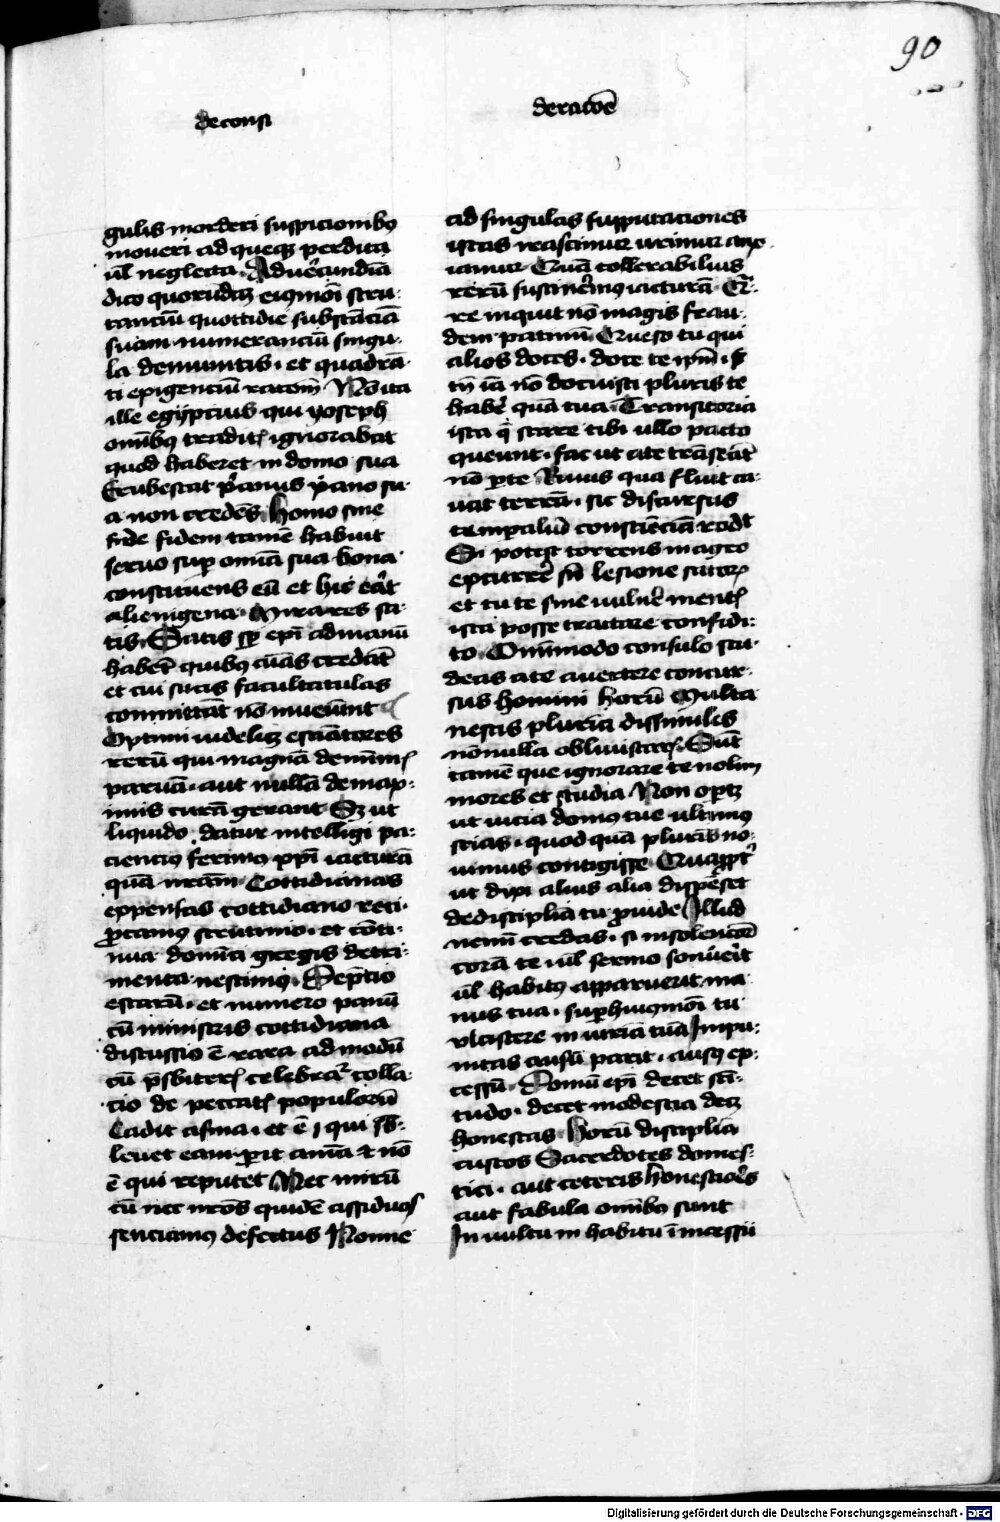 90
de consi
deracōe
gulis morderi suspicionibꝰ
moueri ad queqꝫ perdita
ul̄ neglecta. Ad uēcundiā
dico quorūdaꝫ eiꝰmōi scru-
tanciū quottidie substācia
suam numeranciū singu-
la denumtis. et quadrā-
ti exigenciū racōem Nō ita
ille egypcius qui yoseph
omībꝰ traditis ignorabat
quod haberet in domo sua
Erubescat xp̄anus xp̄ano su-
a non credēs Homo sine
fide fidem tamē habuit
seruo sup̱ omīa sua bona
constituens eū et hic erat
alienigena. Mirares sa-
tis. Satis sup̱ ep̄i ad manū
habēt quibꝰ aīas credāt
et cui suas facultatulas
committāt nō inueniūnt
Optimi uidelicꝫ estiatores
rerū qui magnā de minimis
paruā. aut nullā de maxi-
imis curā gerant Sꝫ ut
liquido datur intelligi pa-
ciencius ferimꝰ xp̄i iacturā
quā nr̄am Cottidianas
expensas cottidiano reci-
procamus scrutinio. et cōti-
nua dominici gregis detri-
menta nescimꝰ. De p̄cio
escarū. et numero panū
cū ministris cottidiana
discussio ē rara admodū
cū p̄sbiteris celebrat̄ colla-
cio de peccatis populorū
Cadit asina. et ē qui sb̄-
leuet eam perit anīa ⁊ nō
ē qui reputet Nec mirū
cū nec nr̄os quidē assiduos
senciamꝰ defectus Nonne
ad singulas supputaciones
istas irascimur urimur anx-
iamur Quā tollerabilius
rerū sustinērmꝰ iacturā Qr̄-
re inquit nō magis frau-
dem patimini Queso tu qui
alios doces. doce te ip̄m. si
tn̄ iā nō docuisti pluris te
habēr quā tua Transitoria
ista q̄ stare tibi ullo pacto
queunt. fac ut a te trāseāt
nō per te Riuus qua fluit ca-
uat terrā. sic discursus
temporaliū consciēciā rodit
Si potest torrens in agro
excurrēr sn̄ lesione sator̄
et tu te sine uulnēr mentis
ista posse tractare confidi-
to. Omnimodo consulo stu-
deas a te auertere concur-
sus homini horū Multa
nescis plurīa dissimules
nōnulla obliuiscaris. Sunt
tamē que ignorare te nolim
mores et studia Non oportꝫ
ut uicia domus tue ultimus
scias. quod quā pluribus no-
uimus contigisse Quapropt̄
ut dixi alius alia dispēset
de disciplia tu prouide Illud
nemī credas. si insolenciorē
corā te ul̄ sermo sonuerit
ul̄ habitꝰ apparuerit ma-
nus tua. super huiꝰmōi tu
ulciscere iniuriā tuā Impu-
nitas ausū parit. ausꝰ ex-
cessū. Domū ep̄i decet scī-
tudo. decet modestia decꝫ
honestas Horū disciplia
custos Sacerdotes domes-
tici. aut ceteris honestioēs
aut fabula omībꝰ sunt
In uultu in habitu ī incessu
Digitalisierung gefördert durch die Deutsche Forschungsgemeinschaft - DFG